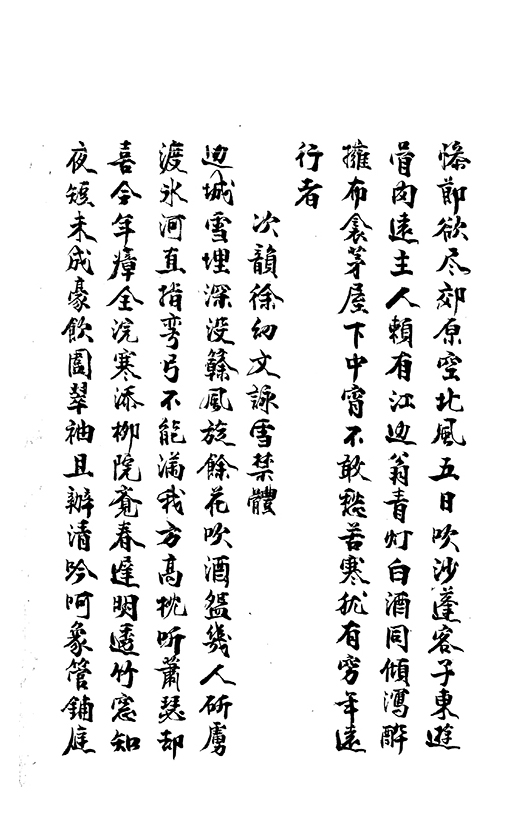 條節欲尽郊原空北風五日吹沙蓬客子東遊
骨肉遠主人頼有江边翁青灯白酒同傾瀉醉
擁布衾茅屋下中宵不敢愁苦寒犹有穷年遠
行者
次韻徐幼文詠雪禁體
边城雪埋深没緣風旋餘花吹酒盌幾人斫虜
渡氷河直指彎弓不能满我方高枕听蕭瑟却
喜今年瘴全浣寒添柳院覔春遲明透竹窓知
夜短未成豪飲圍翠袖且辦清吟呵象管鋪庭